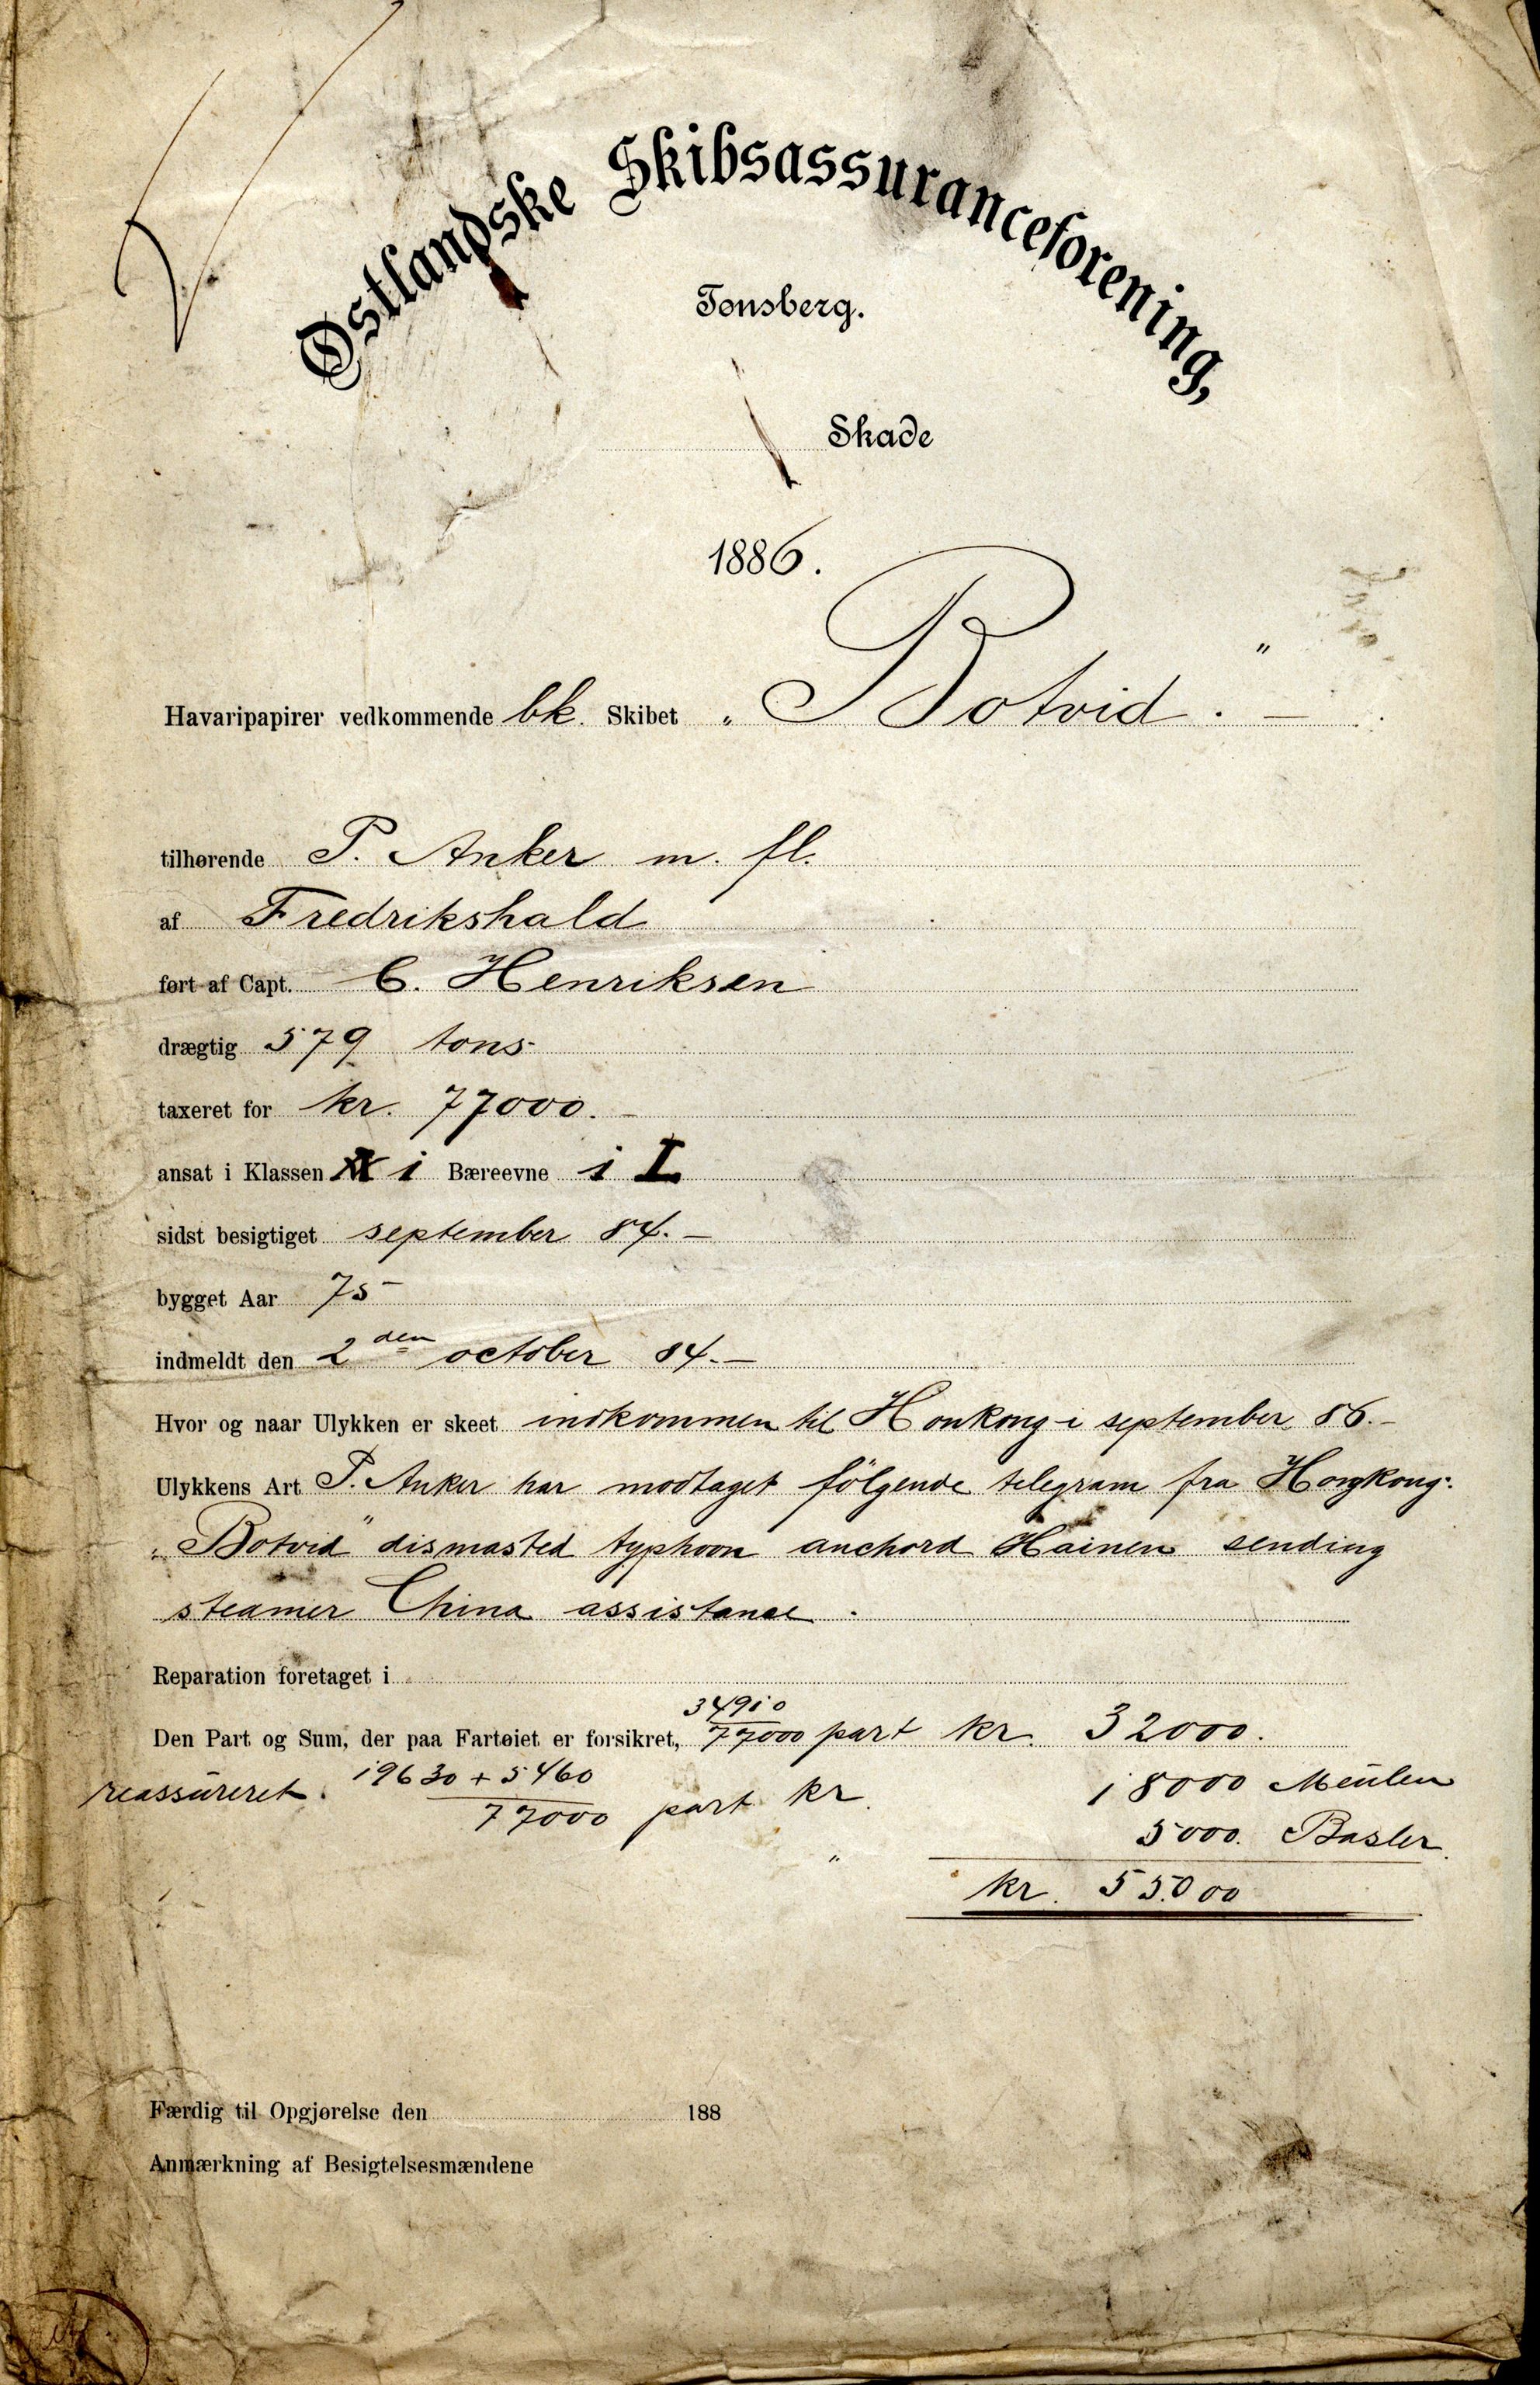 Østlandske Skibsassuranceforening,
Tønsberg.
Skade
1886.
Havaripapirer vedkommende bk. Skibet „Botvid." —
tilhørende P. Anker m. fl.
af Fredrikshald
ført af Capt. C. Henriksen
drægtig 579 tons
taxeret for kr. 77000. —
ansat i Klassen i Bæreevne i I
sidst besigtiget september 84. —
bygget Aar 75
indmeldt den 2den october 84. —
Hvor og naar Ulykken er skeet indkommen til Honkong i september 86. —
Ulykkens Art P. Anker har modtaget følgende telegram fra Hongkong:
„Botvid" dismasted typhoon anchord Hainen sending
steamer China assistance.
Reparation foretaget i
34910
Den Part og Sum, der paa Fartøiet er forsikret, 77000 part kr. 32000.
reassureret. 19630 + 5460
77000 part kr. 18000 Meulen
" 5000. Basler.
kr. 55000
Færdig til Opgjørelse den 188
Anmærkning af Besigtelsesmændene